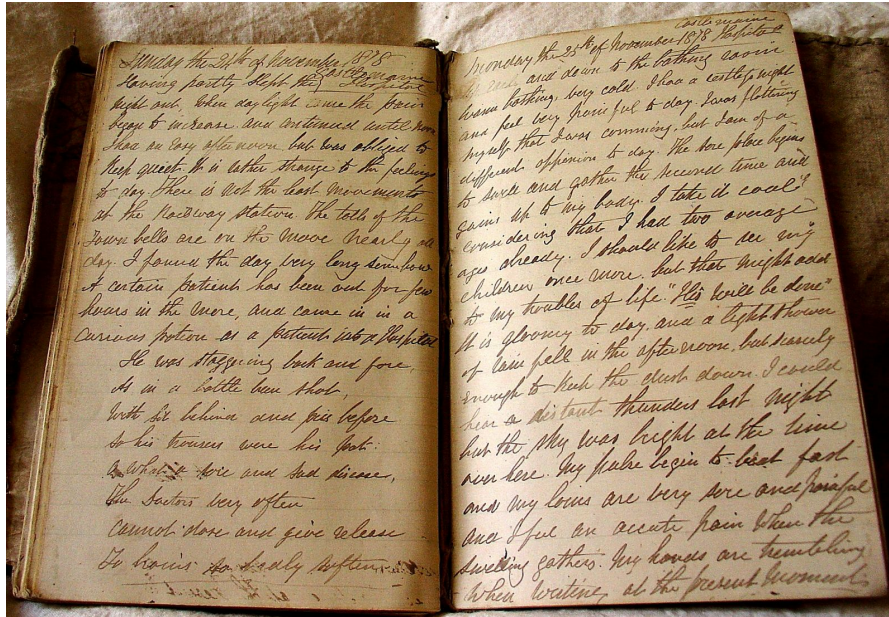 Sunday the 24th of November 1878
Castlemaine
Having partly slept the Hospital
night out, when daylight came the pain
began to increase and continued until noon
I had an easy afternoon, but was obliged to
keep quiet. It is rather strange to the feelings
to day. There is not the least movements
at the Railway station. The tolls of the
Town bells are on the move nearly all
day. I found the day very long somehow
A certain patient has been out for few
hours in the more, and came in in a
curious potion as a patient into a Hospital
He was staggering back and fore,
As in a battle been shot,
With sit behind and piss before
So his trousers were his pot:
What a sore and sad disease,
The Doctors very often
Cannot dose and give release
To brains so badly soften
Castlemaine
Monday the 25th of November 1878 Hospital
and down to the bathing room
warm bathing, very cold. I had a restless night
and feel very painful to day. I was flattering
myself that I was comming, but I am of a
different oppinion to day. The sore place begins
to swell and gather the second time and
gains up to my body. I take it cool
considering that I had two average
ages already. I should like to see my
children once more, but that might add
to my troubles of life. "His will be done"
It is gloomy to day, and a light shower
of rain fell in the afternoon, but scarcely
enough to keep the dust down. I could
hear a distant thunders last night
but the sky was bright at the time
over here. My pulse begin to beat fast
and my loins are very sore and painful
and I feel an accute pain when the
swelling gathers. My hands are trembling
when writing at the present moment